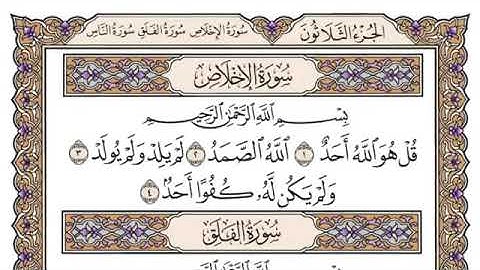 الجزء الثلاثون سورة الإخلاص سورة الفلق سورة الناس
سورة الإخلاص
بسم الله الرحمن الرحيم
قُلْ هُوَ ٱللَّهُ أَحَدٌ ١ ٱللَّهُ ٱلصَّمَدُ ٢ لَمْ يَلِدْ وَلَمْ يُولَدْ ٣
وَلَمْ يَكُن لَّهُۥ كُفُوًا أَحَدٌۢ ٤
سورة الفلق